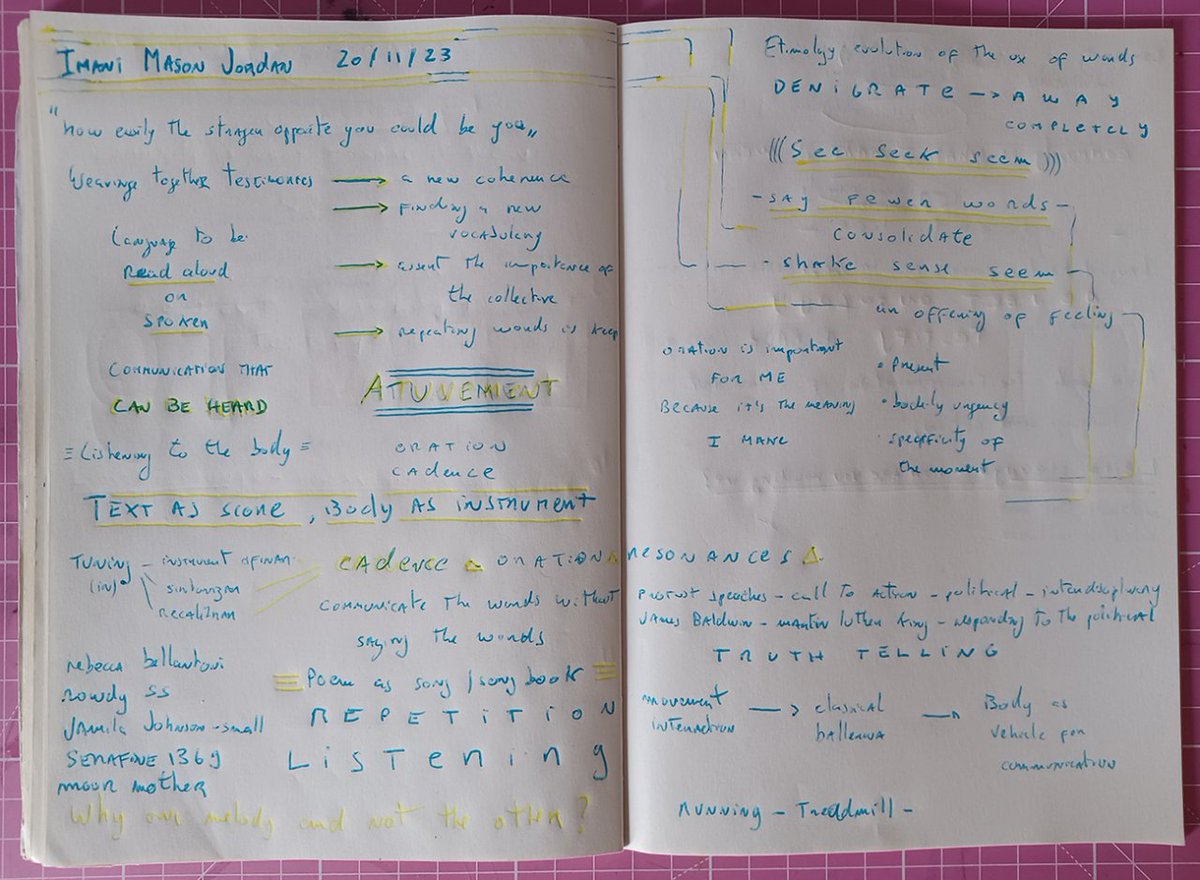 IMANI MASON JORDAN 20/11/23
"how easily the stranger opposite you could be you"
Weavinge together testimonies → a new coherence
→ FINDING a new
vocabulary
Language to be
Read aloud
or
SPOKEN
→ assert the importance of
the collective
→ repeating words is keep
COMMUNICATION THAT
CAN BE HEARD
ATUNEMENT
≡ Listening to the body ≡
ORATION
CADENCE
TEXT AS SCORE, BODY AS INSTRUMENT
TUNING – instrument afinar
(in) sintonizar
recalibrar
CADENCE △ ORATION △ RESONANCES △
COMMUNICATE THE WORDS WITHOUT
SAYING THE WORDS
rebecca bellantoni
rowdy SS
Jamila Johnson-small
SERAFINE 1369
moor mother
≡ Poem as song / song book ≡
REPETITION
LISTENING
Why one melody and not the other?
Etimology evolution of the use of words
DENIGRATE → AWAY
COMPLETELY
((( See Seek seem )))
- say fewer words -
CONSOLIDATE
- shake sense seem -
an offering of feeling
ORATION is important
FOR ME
BECAUSE it's the meaning
I MAKE
• Present
• bodily urgency
• specificity of
the moment
Protest speeches – call to action – political – interdisciplinary
James Baldwin – martin luther king – responding to the political
TRUTH TELLING
movement
interaction
→ classical
ballerina
→ Body as
vehicle for
communication
RUNNING – Treadmill –